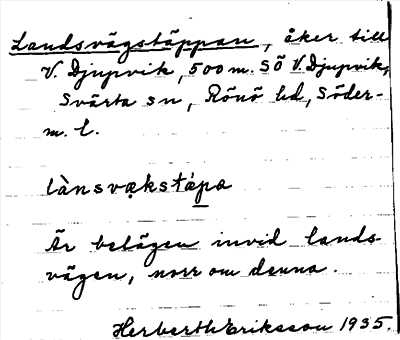 Landsvägstäppan, åker till
V. Djupvik, 500 m. SÖ V. Djupvik,
Svärta sn, Rönö hd, Söder-
m. l.
lànsvækstápa
Är belägen invid lands-
vägen, norr om denna.
Herberth Eriksson 1935.